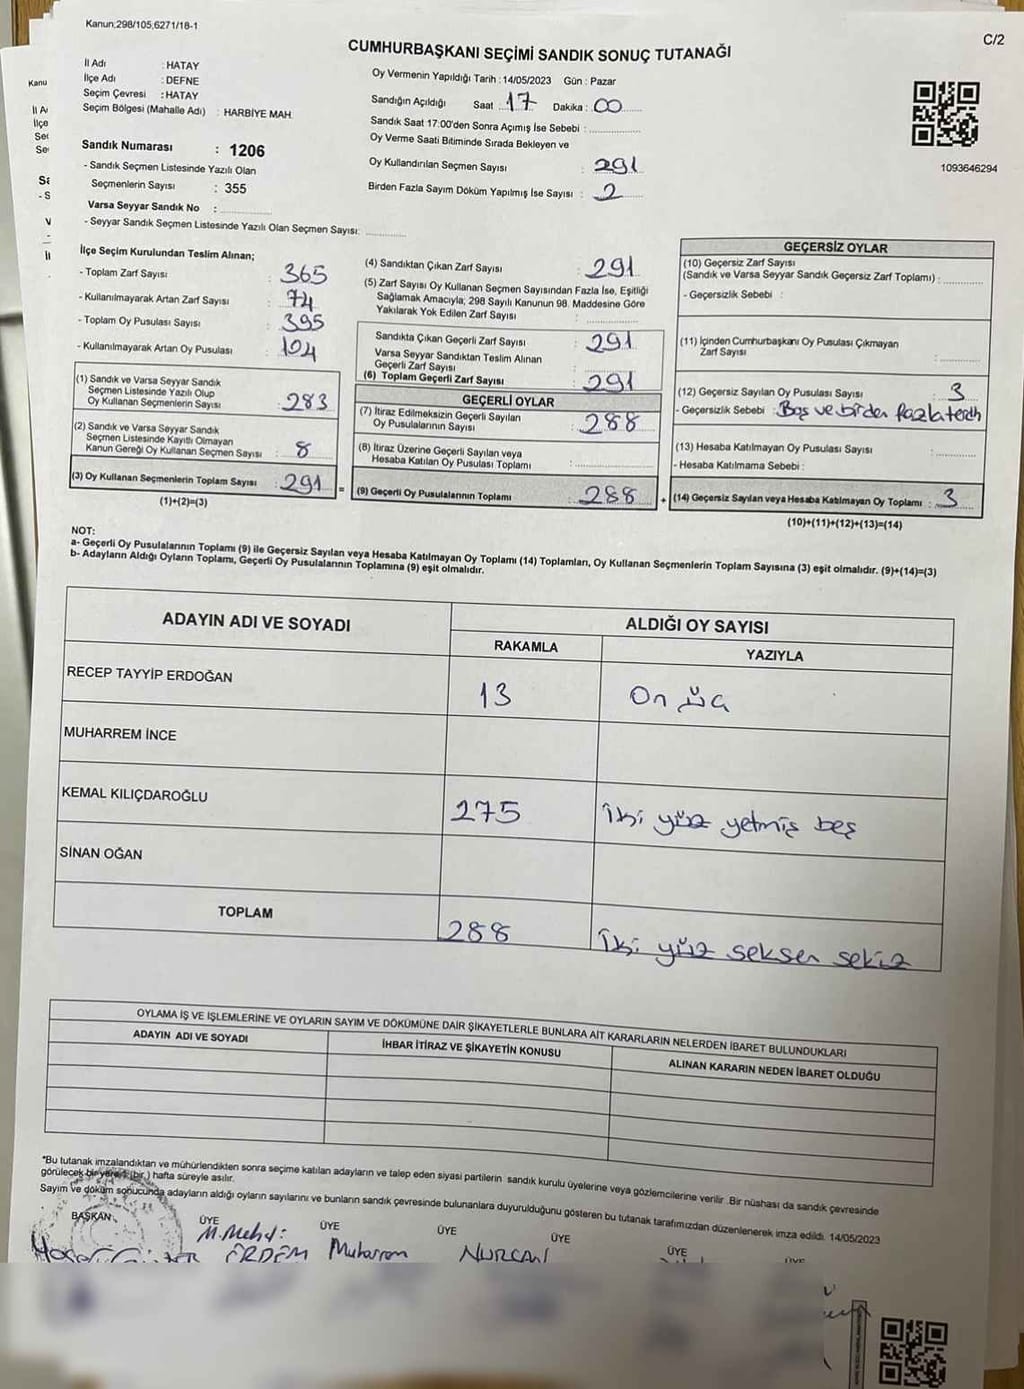 Kanun;298/105,6271/18-1
C/2
CUMHURBAŞKANI SEÇİMİ SANDIK SONUÇ TUTANAĞI
İl Adı : HATAY
İlçe Adı : DEFNE
Seçim Çevresi : HATAY
Seçim Bölgesi (Mahalle Adı) : HARBİYE MAH.
Sandık Numarası : 1206
- Sandık Seçmen Listesinde Yazılı Olan
Seçmenlerin Sayısı : 355
Varsa Seyyar Sandık No :
- Seyyar Sandık Seçmen Listesinde Yazılı Olan Seçmen Sayısı:
Oy Vermenin Yapıldığı Tarih : 14/05/2023 Gün : Pazar
Sandığın Açıldığı Saat 17 Dakika : 00
Sandık Saat 17:00'den Sonra Açımış İse Sebebi :
Oy Verme Saati Bitiminde Sırada Bekleyen ve
Oy Kullandırılan Seçmen Sayısı : 291
Birden Fazla Sayım Döküm Yapılmış İse Sayısı : 2
1093646294
İlçe Seçim Kurulundan Teslim Alınan;
- Toplam Zarf Sayısı : 365
- Kullanılmayarak Artan Zarf Sayısı : 74
- Toplam Oy Pusulası Sayısı : 395
- Kullanılmayarak Artan Oy Pusulası : 104
(1) Sandık ve Varsa Seyyar Sandık
Seçmen Listesinde Yazılı Olup
Oy Kullanan Seçmenlerin Sayısı : 283
(2) Sandık ve Varsa Seyyar Sandık
Seçmen Listesinde Kayıtlı Olmayan
Kanun Gereği Oy Kullanan Seçmen Sayısı : 8
(3) Oy Kullanan Seçmenlerin Toplam Sayısı : 291
(1)+(2)=(3)
(4) Sandıktan Çıkan Zarf Sayısı : 291
(5) Zarf Sayısı Oy Kullanan Seçmen Sayısından Fazla İse, Eşitliği
Sağlamak Amacıyla; 298 Sayılı Kanunun 98. Maddesine Göre
Yakılarak Yok Edilen Zarf Sayısı :
Sandıkta Çıkan Geçerli Zarf Sayısı : 291
Varsa Seyyar Sandıktan Teslim Alınan
Geçerli Zarf Sayısı :
(6) Toplam Geçerli Zarf Sayısı : 291
GEÇERLİ OYLAR
(7) İtiraz Edilmeksizin Geçerli Sayılan
Oy Pusulalarının Sayısı : 288
(8) İtiraz Üzerine Geçerli Sayılan veya
Hesaba Katılan Oy Pusulası Toplamı :
= (9) Geçerli Oy Pusulalarının Toplamı : 288 +
GEÇERSİZ OYLAR
(10) Geçersiz Zarf Sayısı
(Sandık ve Varsa Seyyar Sandık Geçersiz Zarf Toplamı) :
- Geçersizlik Sebebi :
(11) İçinden Cumhurbaşkanı Oy Pusulası Çıkmayan
Zarf Sayısı :
(12) Geçersiz Sayılan Oy Pusulası Sayısı : 3
- Geçersizlik Sebebi : Boş ve birden fazla tercih
(13) Hesaba Katılmayan Oy Pusulası Sayısı :
- Hesaba Katılmama Sebebi :
(14) Geçersiz Sayılan veya Hesaba Katılmayan Oy Toplamı : 3
(10)+(11)+(12)+(13)=(14)
NOT:
a- Geçerli Oy Pusulalarının Toplamı (9) ile Geçersiz Sayılan veya Hesaba Katılmayan Oy Toplamı (14) Toplamları, Oy Kullanan Seçmenlerin Toplam Sayısına (3) eşit olmalıdır. (9)+(14)=(3)
b- Adayların Aldığı Oyların Toplamı, Geçerli Oy Pusulalarının Toplamına (9) eşit olmalıdır.
ADAYIN ADI VE SOYADI
ALDIĞI OY SAYISI
RAKAMLA YAZIYLA
RECEP TAYYİP ERDOĞAN 13 On üç
MUHARREM İNCE
KEMAL KILIÇDAROĞLU 275 İki yüz yetmiş beş
SİNAN OĞAN
TOPLAM 288 İki yüz seksen sekiz
OYLAMA İŞ VE İŞLEMLERİNE VE OYLARIN SAYIM VE DÖKÜMÜNE DAİR ŞİKAYETLERLE BUNLARA AİT KARARLARIN NELERDEN İBARET BULUNDUKLARI
ADAYIN ADI VE SOYADI İHBAR İTİRAZ VE ŞİKAYETİN KONUSU ALINAN KARARIN NEDEN İBARET OLDUĞU
*Bu tutanak imzalandıktan ve mühürlendikten sonra seçime katılan adayların ve talep eden siyasi partilerin sandık kurulu üyelerine veya gözlemcilerine verilir. Bir nüshası da sandık çevresinde
görülecek bir yere 1 (bir ) hafta süreyle asılır.
Sayım ve döküm sonucunda adayların aldığı oyların sayılarını ve bunların sandık çevresinde bulunanlara duyurulduğunu gösteren bu tutanak tarafımızdan düzenlenerek imza edildi. 14/05/2023
BAŞKAN ÜYE ÜYE ÜYE ÜYE ÜYE ÜYE
M.Mehdi
ERDEM Muharrem NURCAN